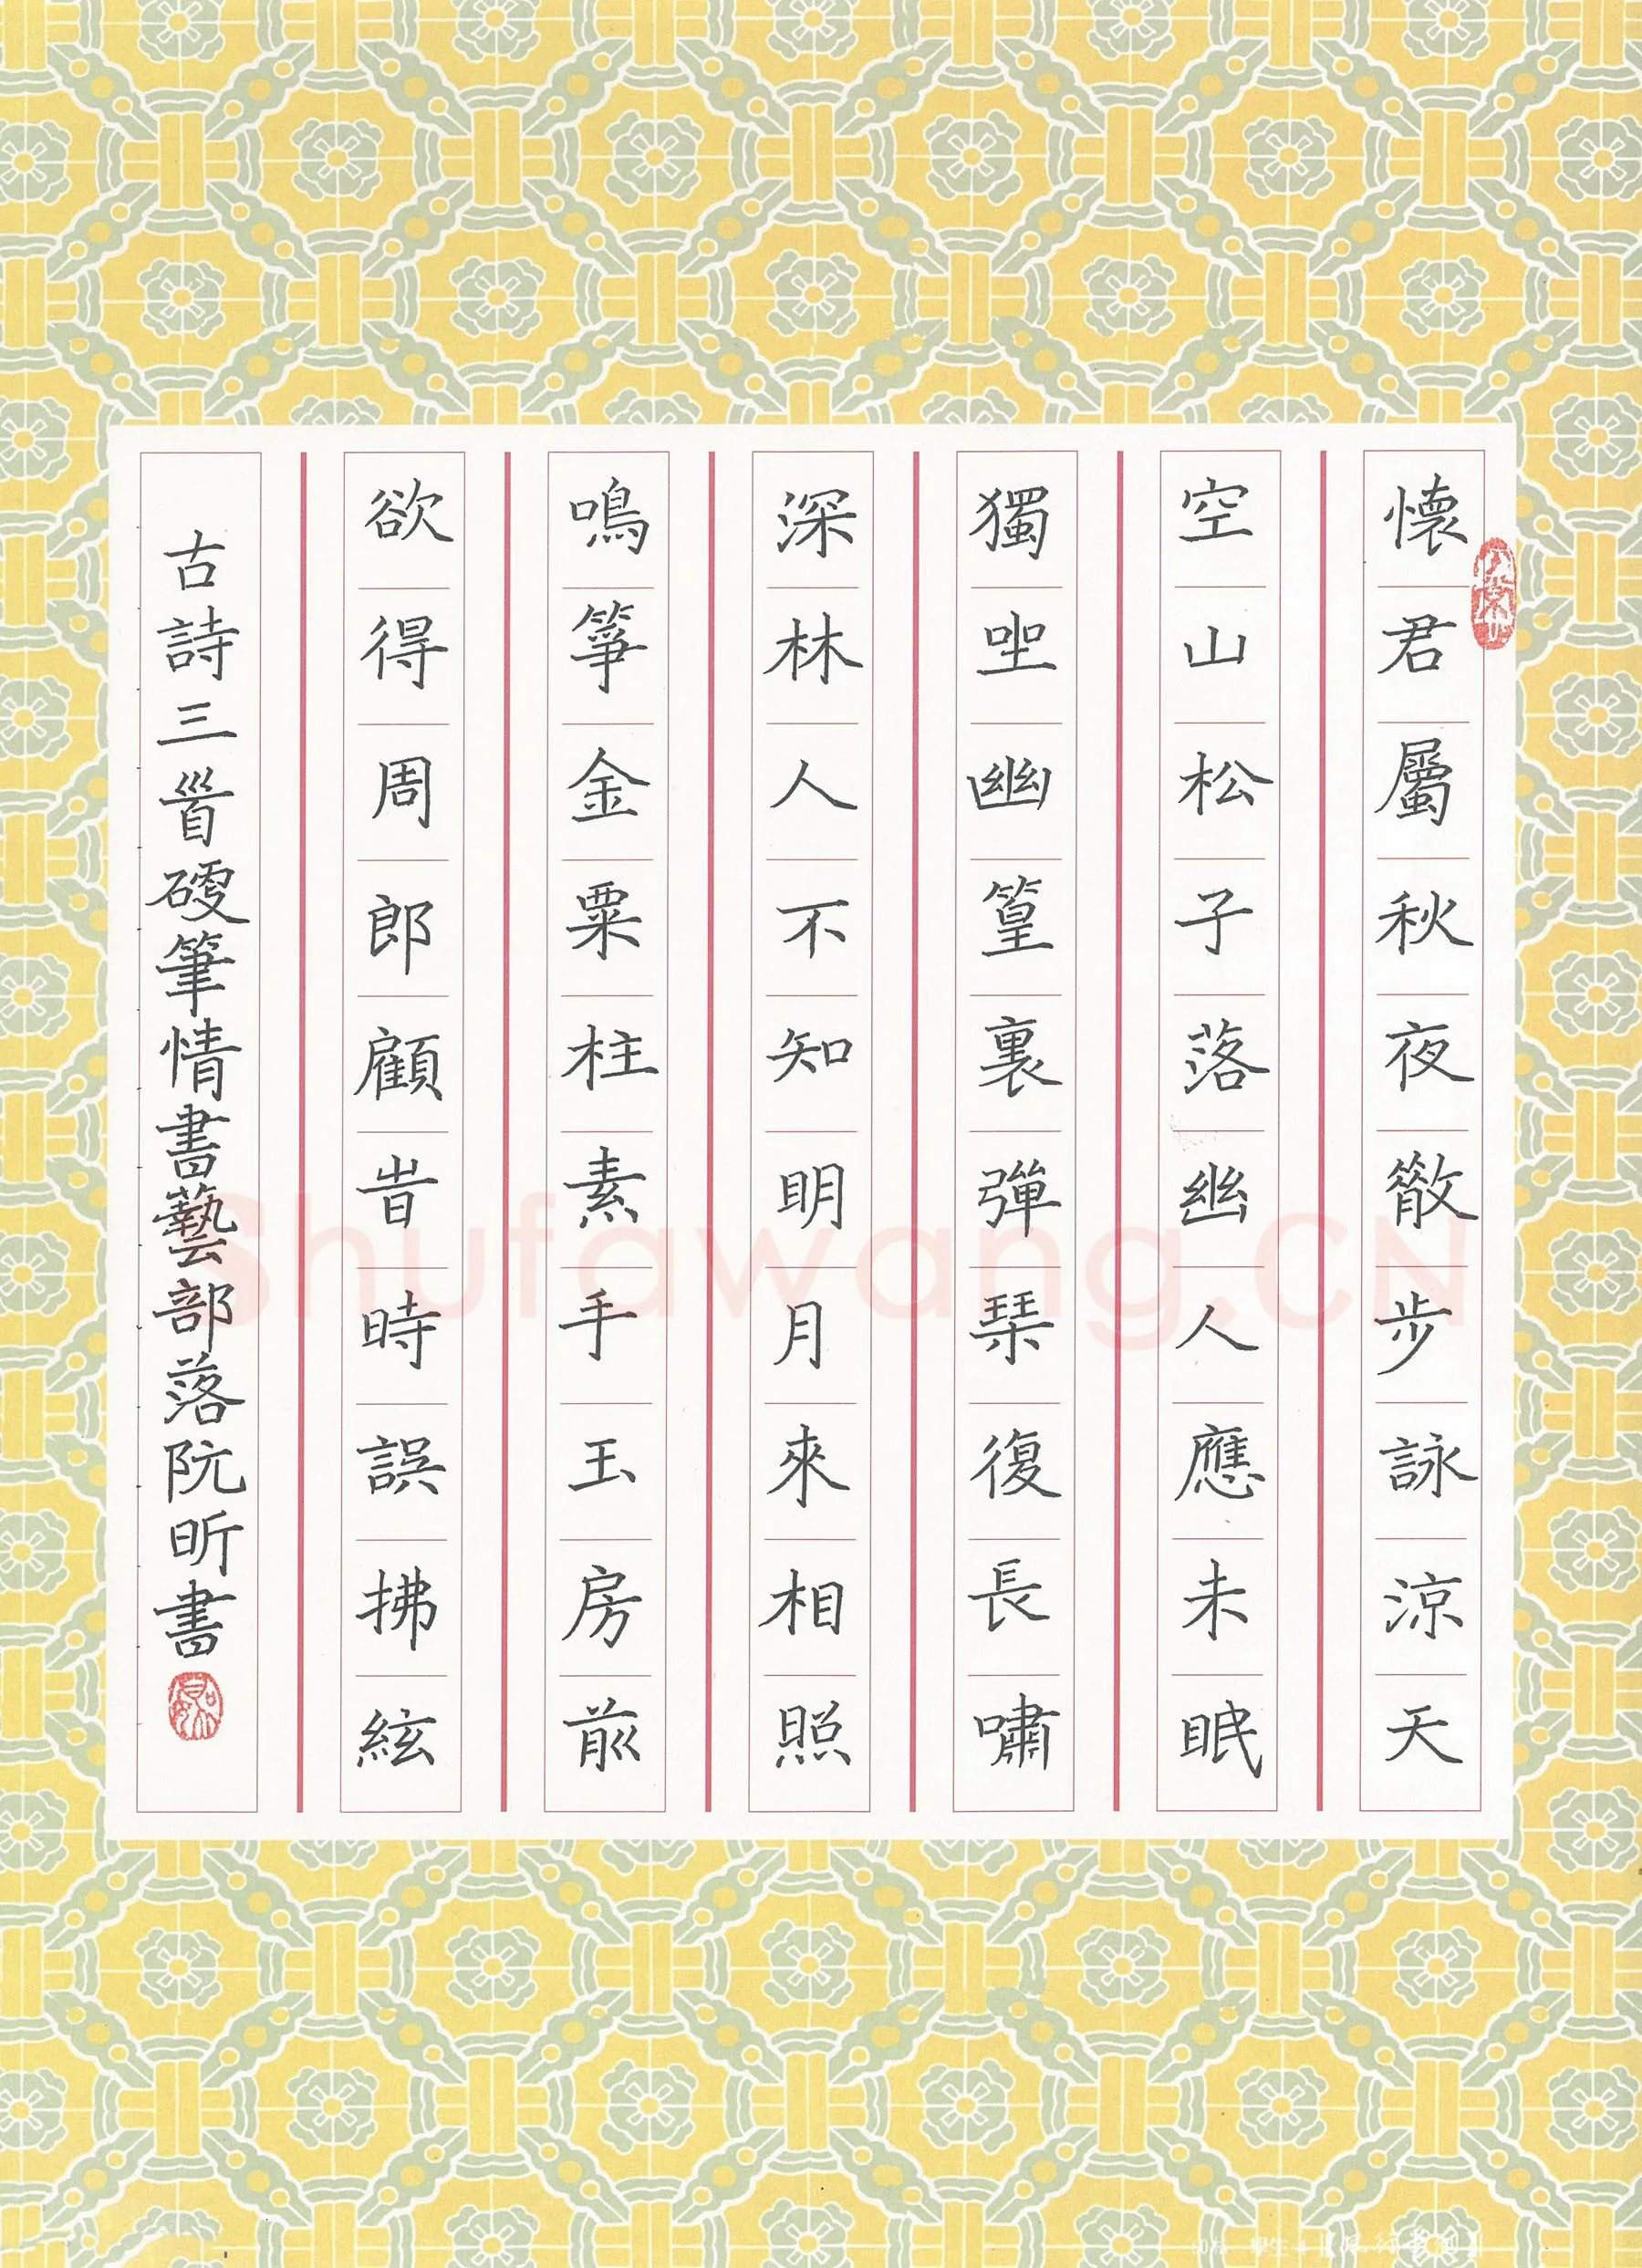 懷君屬秋夜散步詠涼天
空山松子落幽人應未眠
獨坐幽篁裏彈琴復長嘯
深林人不知明月來相照
鳴箏金粟柱素手玉房前
欲得周郎顧時時誤拂絃
古詩三首硬筆情書藝部落阮昕書
Shufawang.CN